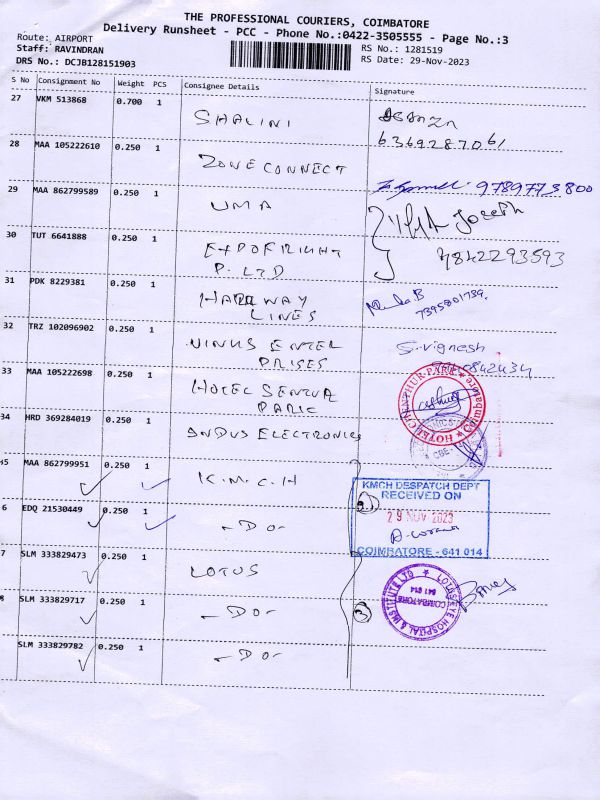 THE PROFESSIONAL COURIERS, COIMBATORE
Delivery Runsheet - PCC - Phone No.:0422-3505555 - Page No.:3
Route: AIRPORT
Staff: RAVINDRAN
DRS No.: DCJB128151903
RS No.: 1281519
RS Date: 29-Nov-2023
S No Consignment No Weight PCS Consignee Details Signature
27 VKM 513868 0.700 1 SHALINI
6369287061
28 MAA 105222610 0.250 1 ZONE CONNECT
9789773800
29 MAA 862799589 0.250 1 UMA
Joseph
30 TUT 6641888 0.250 1 EXPOFRIGHT
P. LTD
9842293593
31 PDK 8229381 0.250 1 HARRWAY
LINES
7395801739.
32 TRZ 102096902 0.250 1 VINUS ENTER
PRISES
S.vignesh
33 MAA 105222698 0.250 1 HOTEL SENTUR
PARK
HOTEL CHENTHUR PARK Coimbatore
34 HRD 369284019 0.250 1 INDUS ELECTRONICS
CBE
45 MAA 862799951 0.250 1 K.M.C.H
KMCH DESPATCH DEPT
RECEIVED ON
29 NOV 2023
COIMBATORE - 641 014
6 EDQ 21530449 0.250 1 -DO-
7 SLM 333829473 0.250 1 LOTUS
LOTUS EYE HOSPITAL & INSTITUTE LTD
COIMBATORE
641 014
8 SLM 333829717 0.250 1 -DO-
SLM 333829782 0.250 1 -DO-